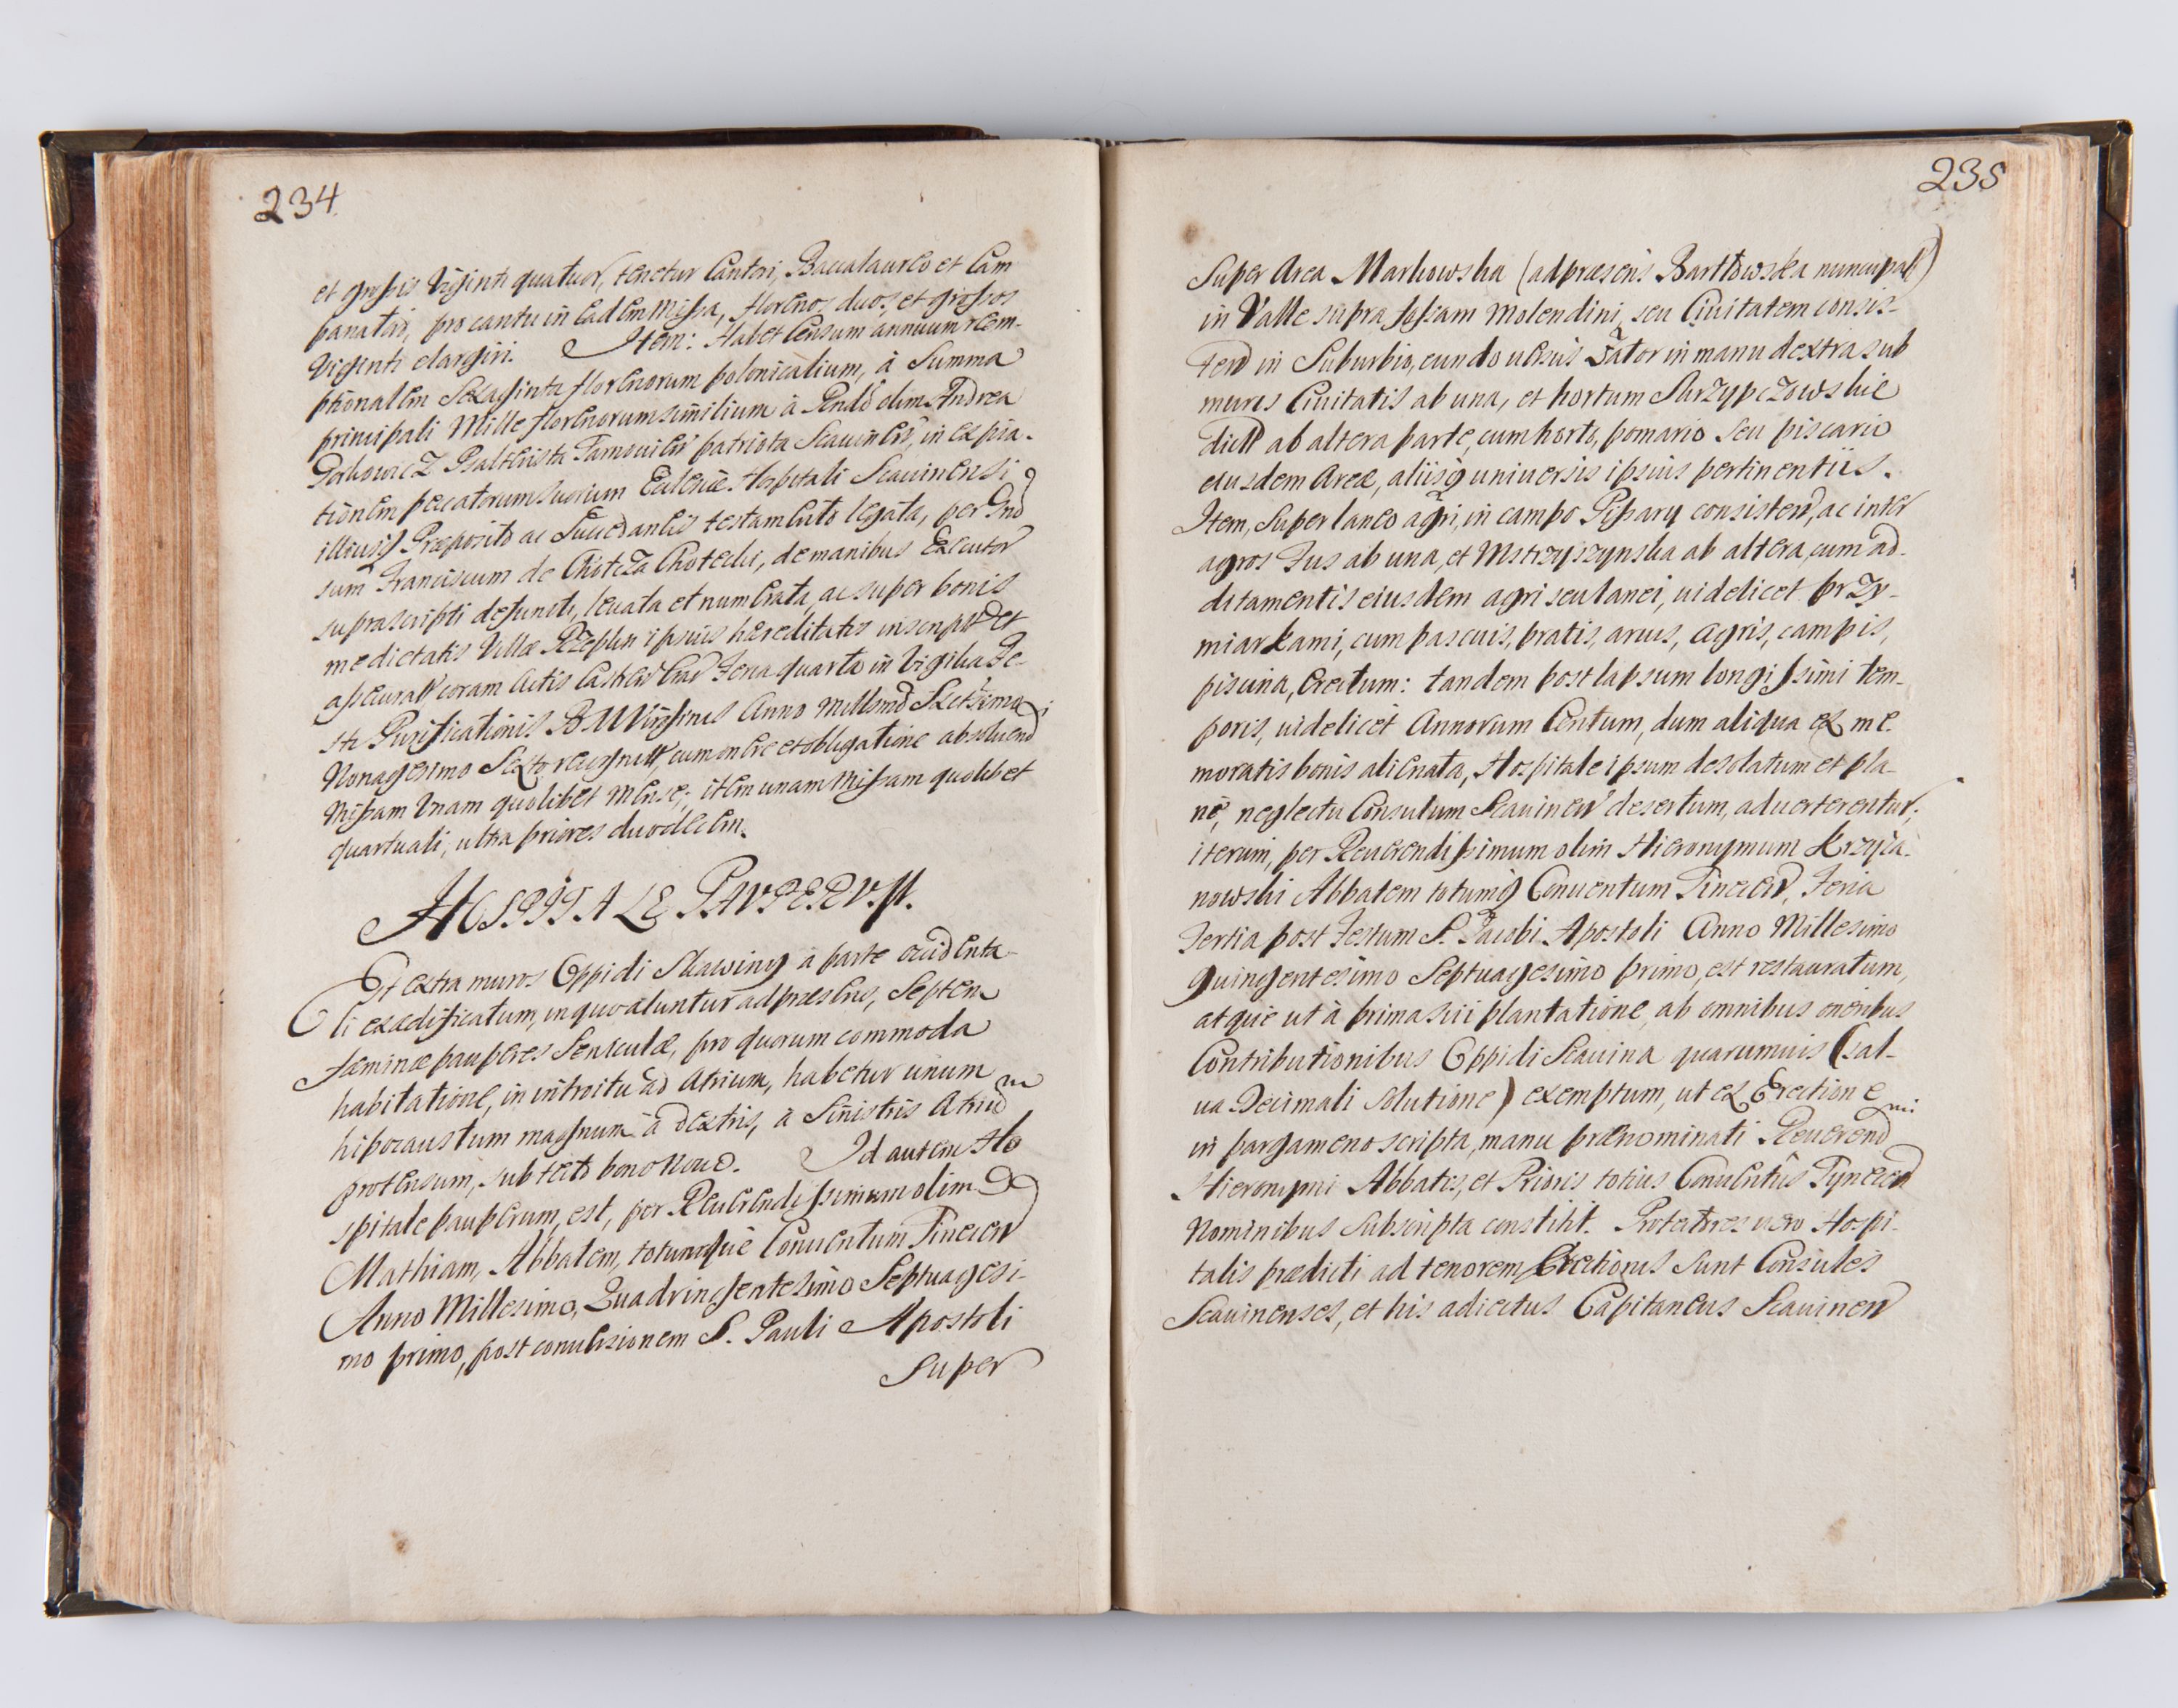 234
et grossis Viginti quatuor, tenetur Cantori, Baccalaureo et Cam
panatori, pro cantu in eadem Missa, florenos duos, et grossos
Viginti elargiri. Item: Habet Censum annuum reem-
ptionalem Sexaginta florenorum polonicalium, à Summa
principali Mille florenorum similium à Rndo olim Andrea
Gorkowicz Psalterista Tarnovien patriota Scavinen, in expia-
tionem peccatorum suorum Eccleiæ Hospitali Scauinensi
illiusq Præposito ac Succedaneis testamento legata, per Gnd
sum Franciscum de Chotcza Chotecki, de manibus Executor
suprascripti defuncti, levata et numerata, ac super bonis
medietatis Villæ Rzeplin ipsius hæreditatis inscript et
assecurat coram Actis Castren Crac Feria quarta in Vigilia Fe-
sti Purificationis B.M.Virginis Anno Millesimo Sexcentesimo
Nonagesimo Sexto recognit, cum onere et obligatione absoluend
Missam Unam quolibet Mense; item unam Missam quolibet
quartuali, ultra priores duodecim.
HOSPITALE PAVPERVM.
Est extra muros Oppidi Skawiny à parte occidenta
li exædificatum, in quo aluntur ad præsens, Septem
fæminæ pauperes Seniculæ, pro quarum commoda
habitatione, in introitu ad Atrium, habetur unum
hipocaustum magnum à dextris, à Sinistris Atrium
protensum, sub tecto bono novo. Id autem Ho
spitale pauperum, est, per Reuerendissimum olim D
Mathiam, Abbatem, totumque Conuentum Tinecen
Anno Millesimo, Quadringentesimo Septuagesi-
mo primo, post conuersionem S. Pauli Apostoli
super
235
Super Area Markowska (ad præsens Bartłowska nuncupat)
in Valle supra fossam molendini, seu Ciuitatem consis-
tend in Suburbio, eundo uersus Zator in manu dextra sub
muris Ciuitatis ab una, et hortum Skrzypczowskie
dict ab altera parte, cum horto, pomario seu piscario
eiusdem Areæ, aliisq uniuersis ipsius pertinentiis.
Item, Super laneo agri, in campo Pisary consistend, ac inter
agros Jus ab una, et Mstrzyszynska ab altera, cum ad-
ditamentis eiusdem agri seu lanei, uidelicet przy-
miarkami, cum pascuis, pratis, aruis, agris, campis,
piscina, Erectum: tandem post lapsum longissimi tem-
poris, uidelicet Annorum Centum, dum aliqua ex me-
moratis bonis alienata, Hospitale ipsum desolatum et pla-
nè, neglectu Consulum Scauinen desertum, aduerterentur;
iterum, per Reuerendissimum olim Hieronymum Krzyża-
nowski Abbatem totumq Conuentum Tinecen, Feria
Tertia post Festum S. Jacobi Apostoli Anno Millesimo
quingentesimo Septuagesimo primo, est restauratum,
atque ut à prima sui plantatione, ab omnibus oneribus
Contributionibus Oppidi Scauina quarumuis (sal-
ua Decimali solutione) exemptum, ut ex Erectione
in pargameno scripta, manu prænominati Reuerend mi:
Hieronymi Abbatis, et Prioris totius Conuentûs Tynecen
Nominibus subscripta constitit. Protectores uero Hospi-
talis prædicti ad tenorem Erectionis sunt Consules
Scauinenses, et his adiectus Capitaneus Scauinen